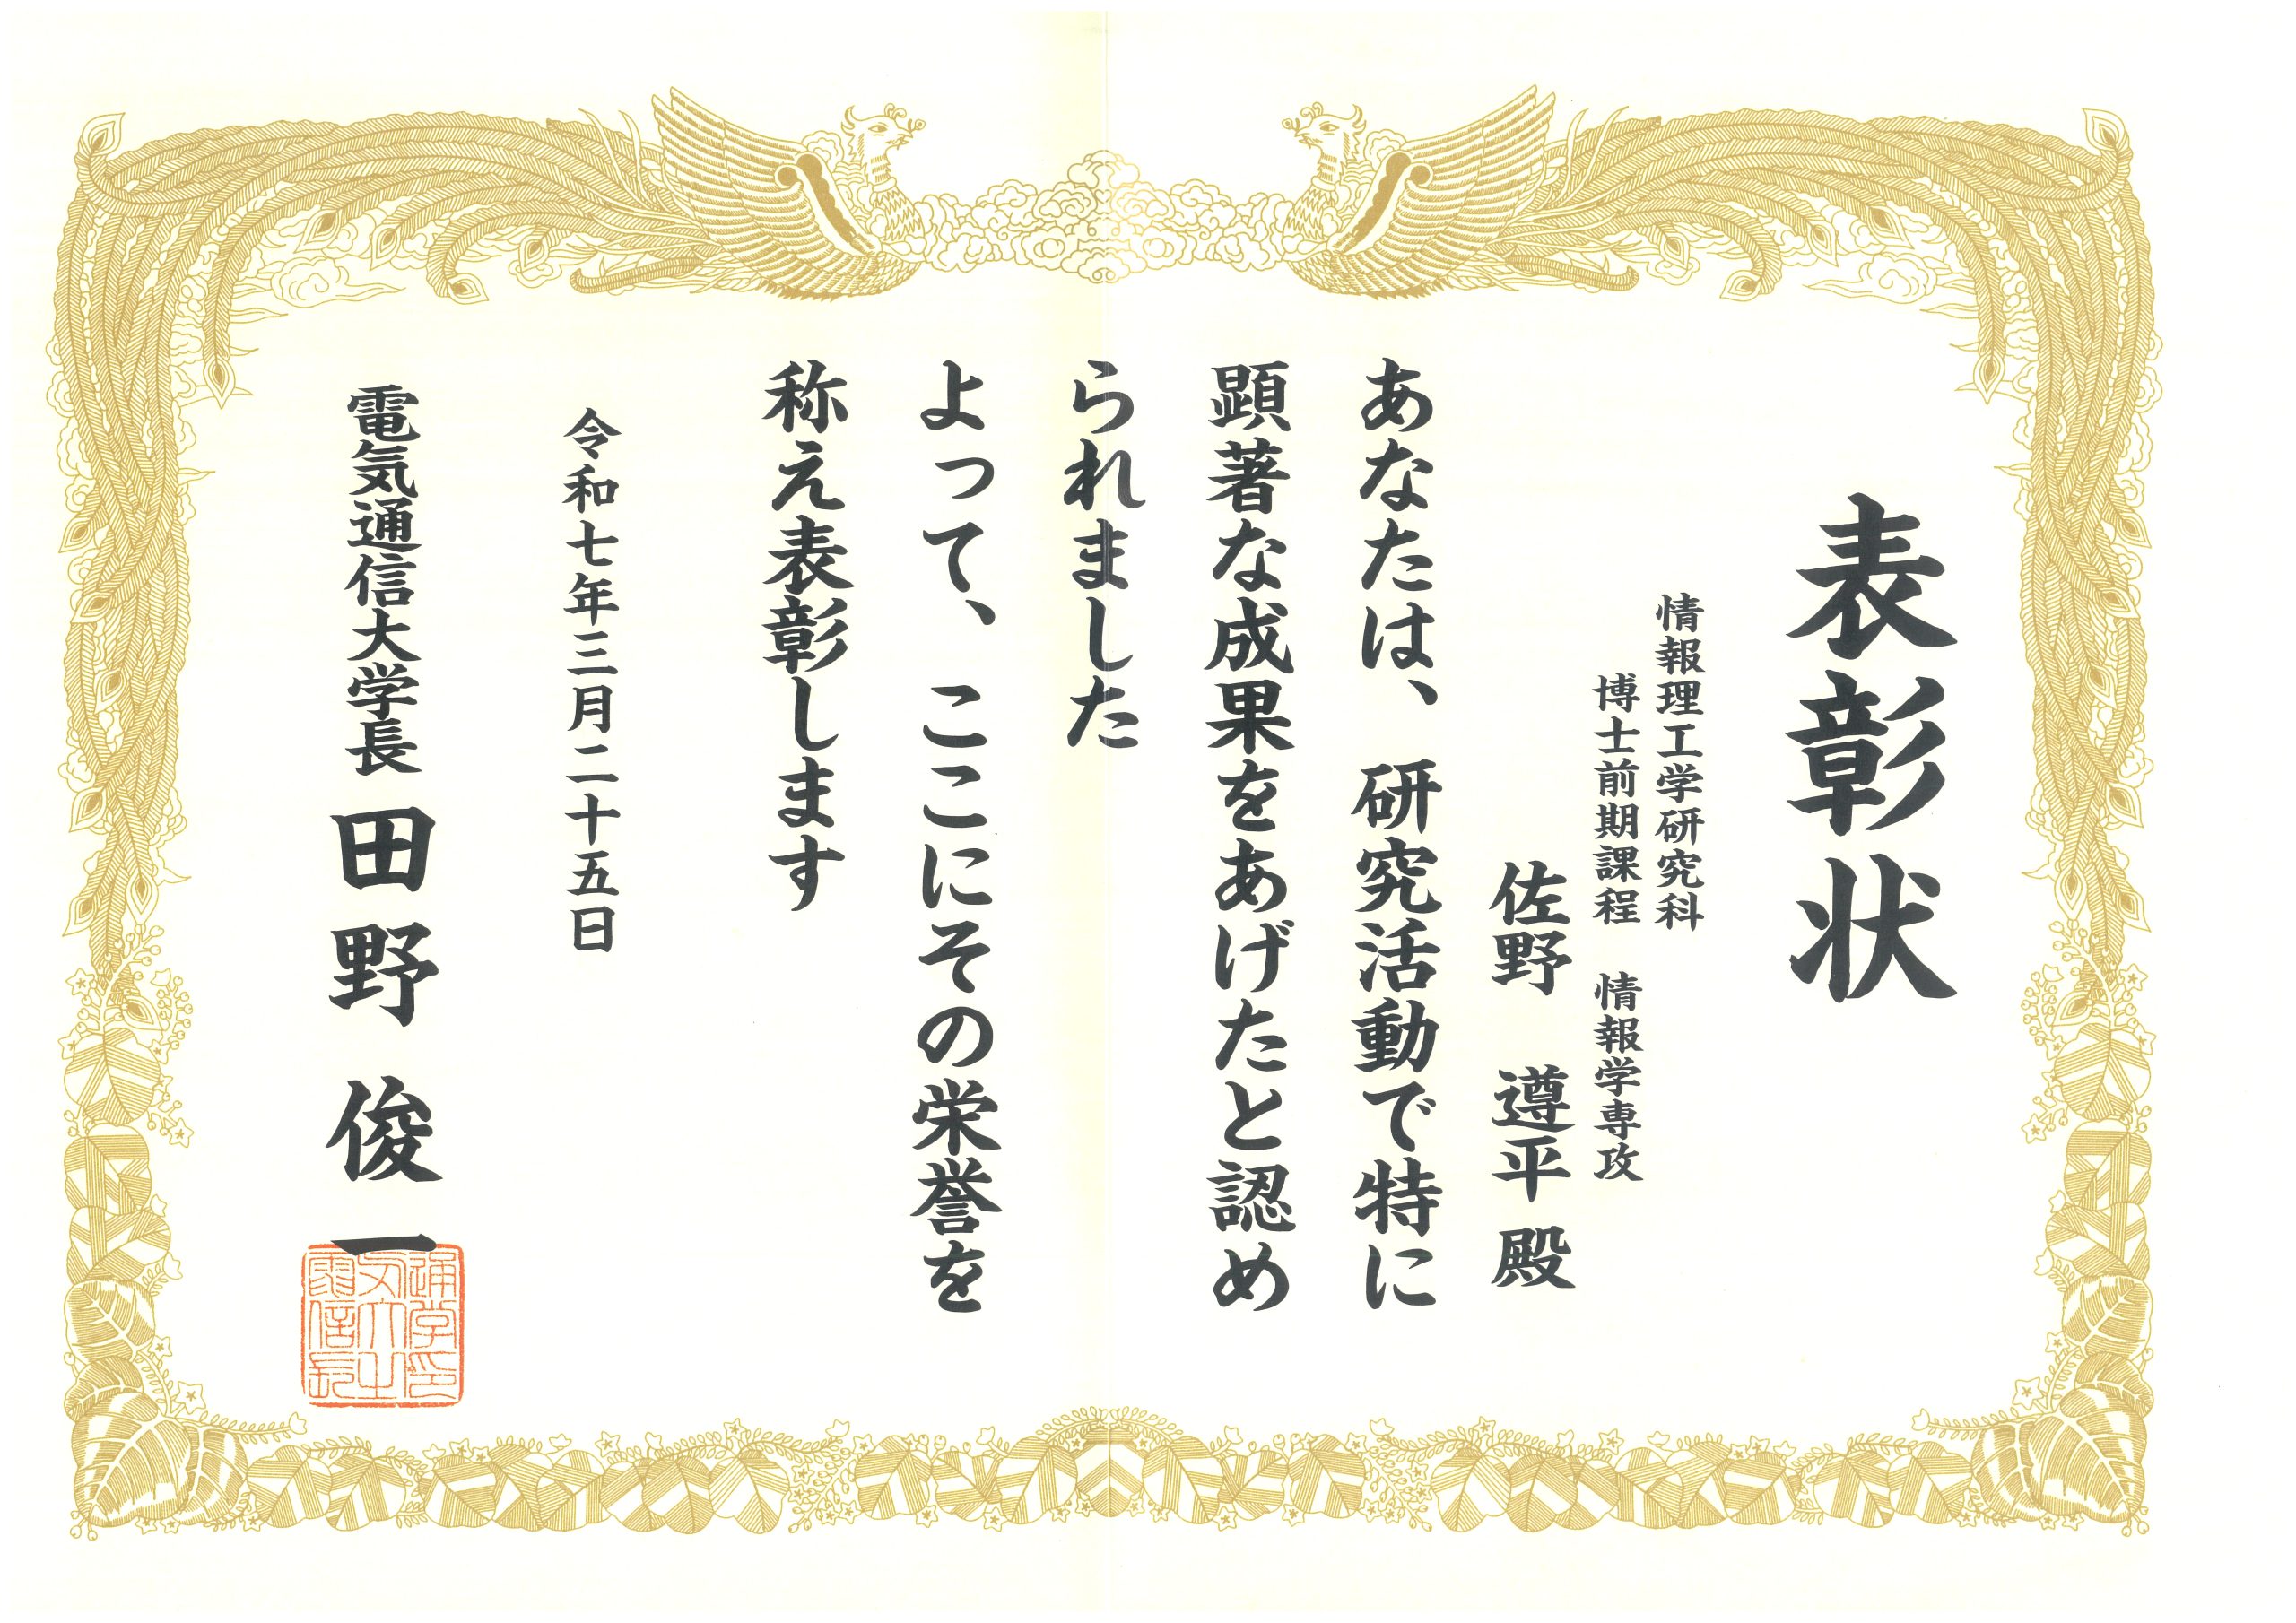 表彰状
情報理工学研究科
博士前期課程　情報学専攻
佐野　遵平 殿
あなたは、研究活動で特に
顕著な成果をあげたと認め
られました
よって、ここにその栄誉を
称え表彰します
令和七年三月二十五日
電気通信大学長 田野俊一